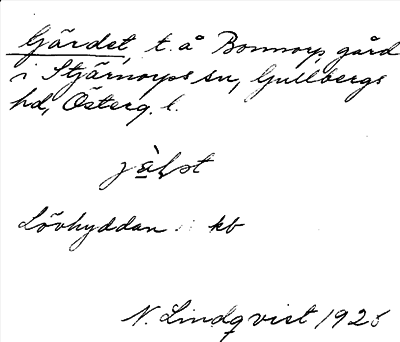 Gärdet, t. å Bonnorps gård
i Stjärnorps sn, Gullbergs
hd, Österg. l.
Lövhyddan kb
N. Lindqvist 1925